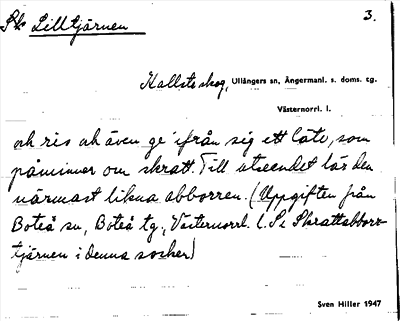 Sk Lilltjärnen
3.
Kallsta skog, Ullångers sn, Ångermanl. s. doms. tg.
Västernorrl. l.
och ris och även ge ifrån sig ett läte, som
påminner om skratt. Till utseendet lär den
närmast likna abborren. (Uppgiften från
Boteå sn, Boteå tg., Västernorrl. l. Se Skrattabborr-
tjärnen i denna socken)
Sven Hiller 1947